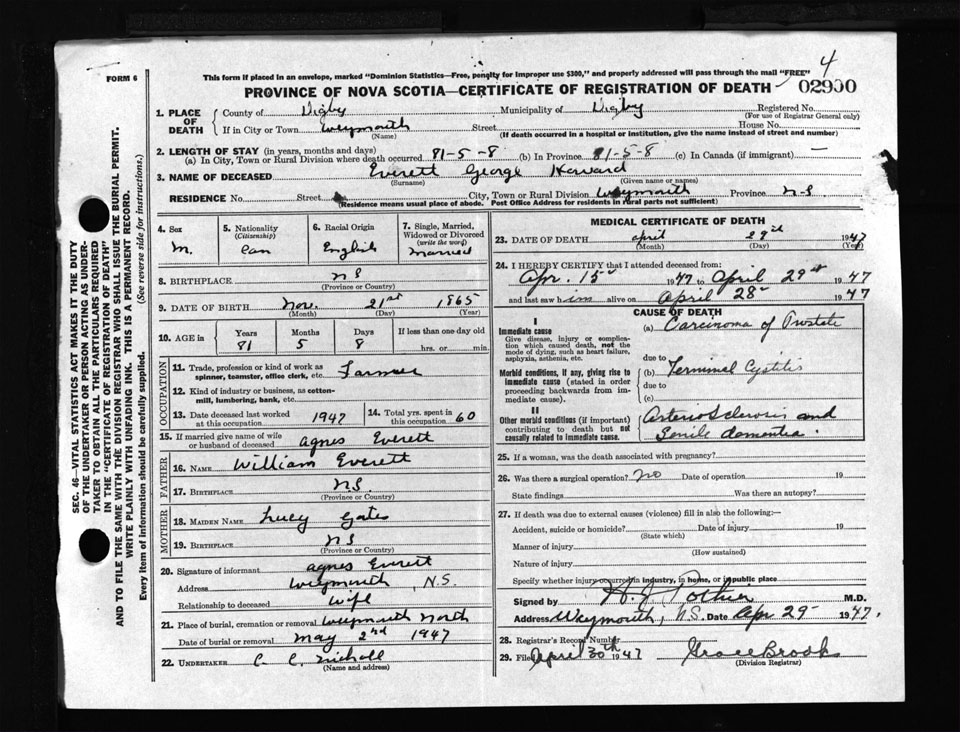 4
FORM 6
This form if placed in an envelope, marked "Dominion Statistics—Free, penalty for improper use $300," and properly addressed will pass through the mail "FREE"
PROVINCE OF NOVA SCOTIA—CERTIFICATE OF REGISTRATION OF DEATH
02900
1. PLACE OF DEATH
County of Digby Municipality of Digby Registered No.
(For use of Registrar General only)
If in City or Town Weymouth Street House No.
(Name) (If death occurred in a hospital or institution, give the name instead of street and number)
2. LENGTH OF STAY (in years, months and days)
(a) In City, Town or Rural Division where death occurred 81-5-8 (b) In Province 81-5-8 (c) In Canada (if immigrant) —
3. NAME OF DECEASED Everett George Howard
(Surname) (Given name or names)
RESIDENCE No. Street City, Town or Rural Division Weymouth Province N-S
(Residence means usual place of abode. Post Office Address for residents in rural parts not sufficient)
4. Sex
M.
5. Nationality
(Citizenship)
Can
6. Racial Origin
English
7. Single, Married, Widowed or Divorced
(write the word)
Married
8. BIRTHPLACE NS
(Province or Country)
9. DATE OF BIRTH Nov. 21st 1865
(Month) (Day) (Year)
10. AGE in
Years Months Days If less than one day old
81 5 8 hrs. or min.
OCCUPATION
11. Trade, profession or kind of work as
spinner, teamster, office clerk, etc. Farmer
12. Kind of industry or business, as cotton-
mill, lumbering, bank, etc.
13. Date deceased last worked
at this occupation 1947
14. Total yrs. spent in
this occupation 60
15. If married give name of wife
or husband of deceased Agnes Everett
FATHER
16. NAME William Everett
17. BIRTHPLACE NS.
(Province or Country)
MOTHER
18. MAIDEN NAME Lucy Gates
19. BIRTHPLACE NS
(Province or Country)
20. Signature of informant Agnes Everett
Address Weymouth N.S.
Relationship to deceased Wife
21. Place of burial, cremation or removal Weymouth North
Date of burial or removal May 2nd 1947
22. UNDERTAKER C. C. Nicholl
(Name and address)
MEDICAL CERTIFICATE OF DEATH
23. DATE OF DEATH April 29th 1947
(Month) (Day) (Year)
24. I HEREBY CERTIFY that I attended deceased from:
Apr. 15 1947 to April 29 1947
and last saw him alive on April 28 1947
CAUSE OF DEATH
I
Immediate cause
Give disease, injury or complica-
tion which caused death, not the
mode of dying, such as heart failure,
asphyxia, asthenia, etc.
(a) Carcinoma of Prostate
due to
Morbid conditions, if any, giving rise to
immediate cause (stated in order
proceeding backwards from im-
mediate cause).
(b) Terminal Cystitis
due to
(c)
II
Other morbid conditions (if important)
contributing to death but not
causally related to immediate cause.
Arterio Sclerosis and
Senile dementia.
25. If a woman, was the death associated with pregnancy?
26. Was there a surgical operation? No Date of operation 19
State findings Was there an autopsy?
27. If death was due to external causes (violence) fill in also the following:—
Accident, suicide or homicide? Date of injury 19
(State which)
Manner of injury
(How sustained)
Nature of injury
Specify whether injury occurred in industry, in home, or in public place
Signed by H. J. Pothier M.D.
Address Weymouth, N.S. Date Apr 29 1947.
28. Registrar's Record Number
29. Filed April 30th 1947 Grace Brooks
(Division Registrar)
SEC. 46—VITAL STATISTICS ACT MAKES IT THE DUTY
OF THE UNDERTAKER OR PERSON ACTING AS UNDER-
TAKER TO OBTAIN ALL THE PARTICULARS REQUIRED
IN THE "CERTIFICATE OF REGISTRATION OF DEATH"
AND TO FILE THE SAME WITH THE DIVISION REGISTRAR WHO SHALL ISSUE THE BURIAL PERMIT.
WRITE PLAINLY WITH UNFADING INK. THIS IS A PERMANENT RECORD.
Every item of Information should be carefully supplied. (See reverse side for instructions.)